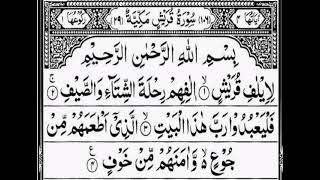 اٰيَاتُهَا ٤ (١٠٦) سُوْرَةُ قُرَيْشٍ مَكِّيَّةٌ (٢٩) رُكُوْعُهَا ١
بِسْمِ اللّٰهِ الرَّحْمٰنِ الرَّحِيْمِ
لِاِيْلٰفِ قُرَيْشٍ ۙ﴿١﴾ اٖلٰفِهِمْ رِحْلَةَ الشِّتَآءِ وَالصَّيْفِ ۚ﴿٢﴾
فَلْيَعْبُدُوْا رَبَّ هٰذَا الْبَيْتِ ۙ﴿٣﴾ الَّذِيْٓ اَطْعَمَهُمْ مِّنْ
جُوْعٍ ۙ۬ وَّاٰمَنَهُمْ مِّنْ خَوْفٍ ﴿٤﴾